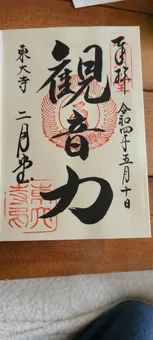 奉拝
令和四年五月十日
観音力
東大寺
二月堂